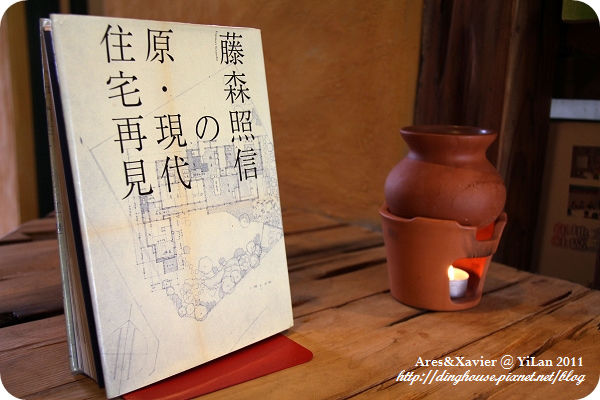 藤森照信
の
原・現代
住宅再見
Ares&Xavier @ YiLan 2011
http://dinghouse.pixnet.net/blog